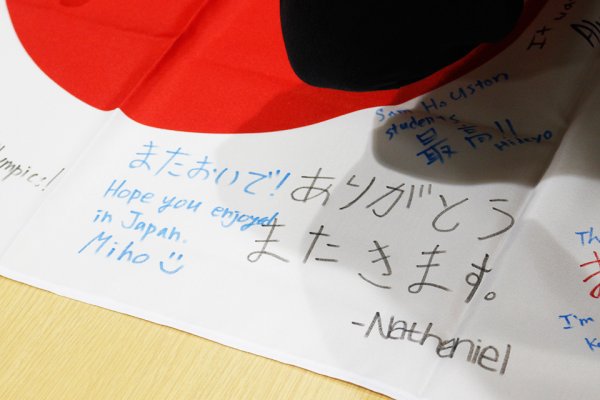 It
Sam Houston
students
最高!!
Hikayo
lympics!
またおいで!
Hope you enjoyed
in Japan.
Miho
ありがとう
またきます。
-Nathaniel
Th
I'm